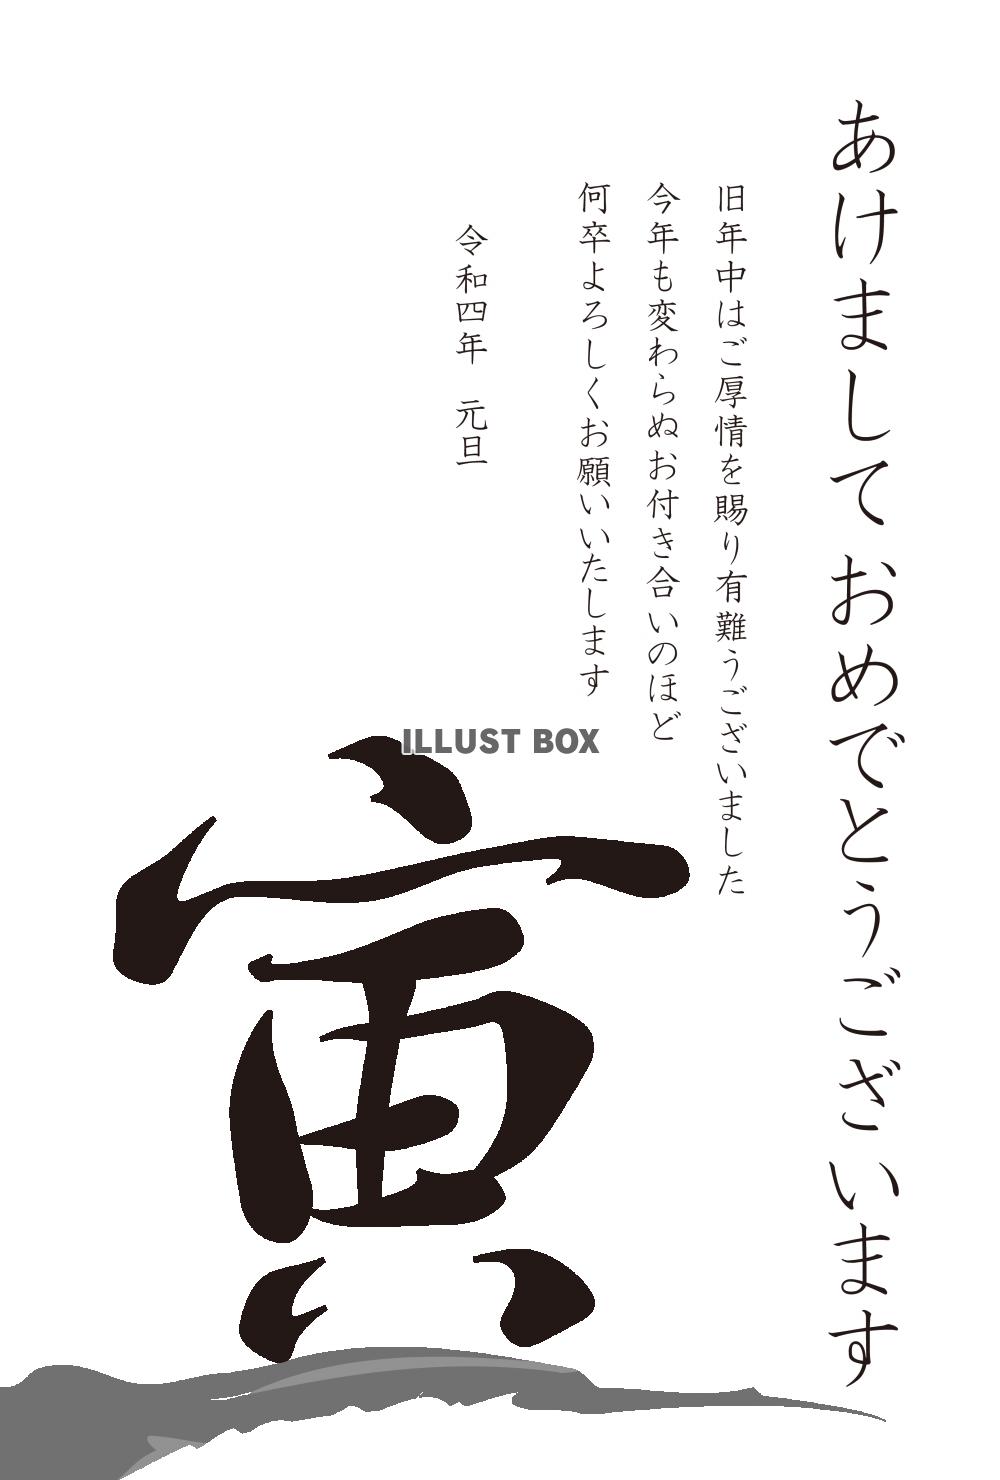 あけましておめでとうございます
旧年中はご厚情を賜り有難うございました
今年も変わらぬお付き合いのほど
何卒よろしくお願いいたします
令和四年 元旦
ILLUST BOX
寅